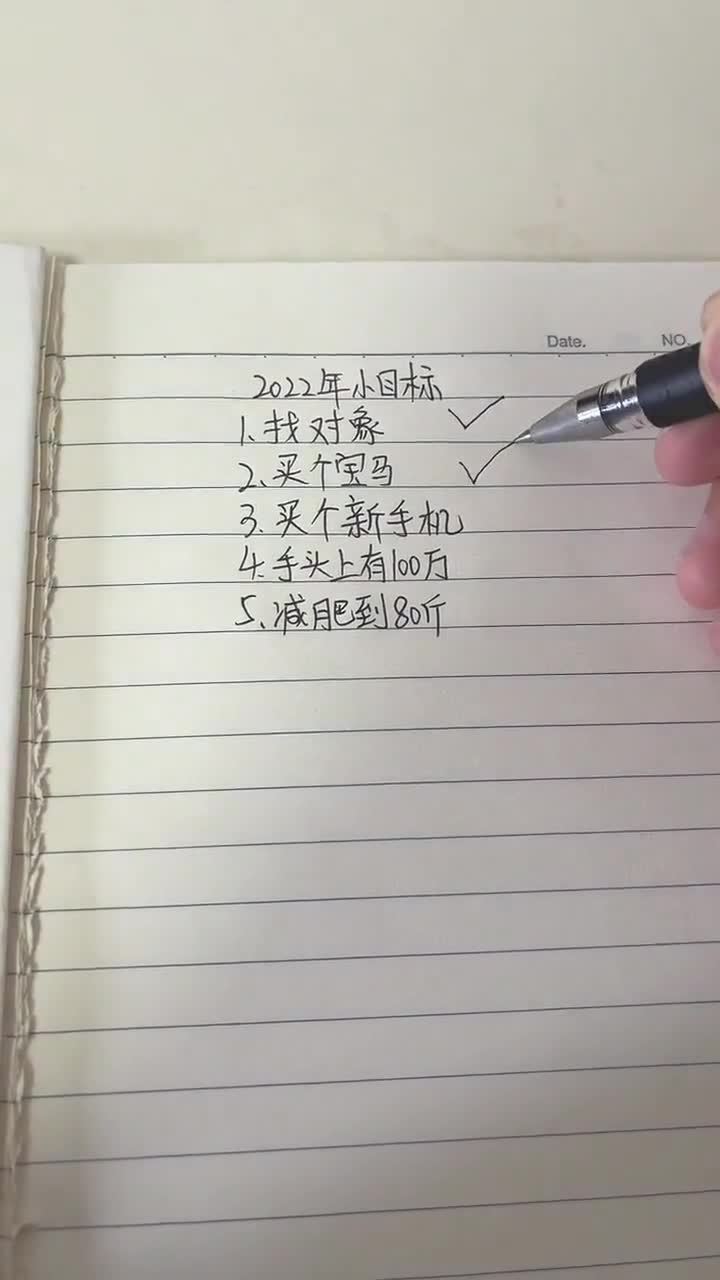 Date.
NO.
2022年小目标
1、找对象
2、买个宝马
3、买个新手机
4、手头上有100万
5、减肥到80斤